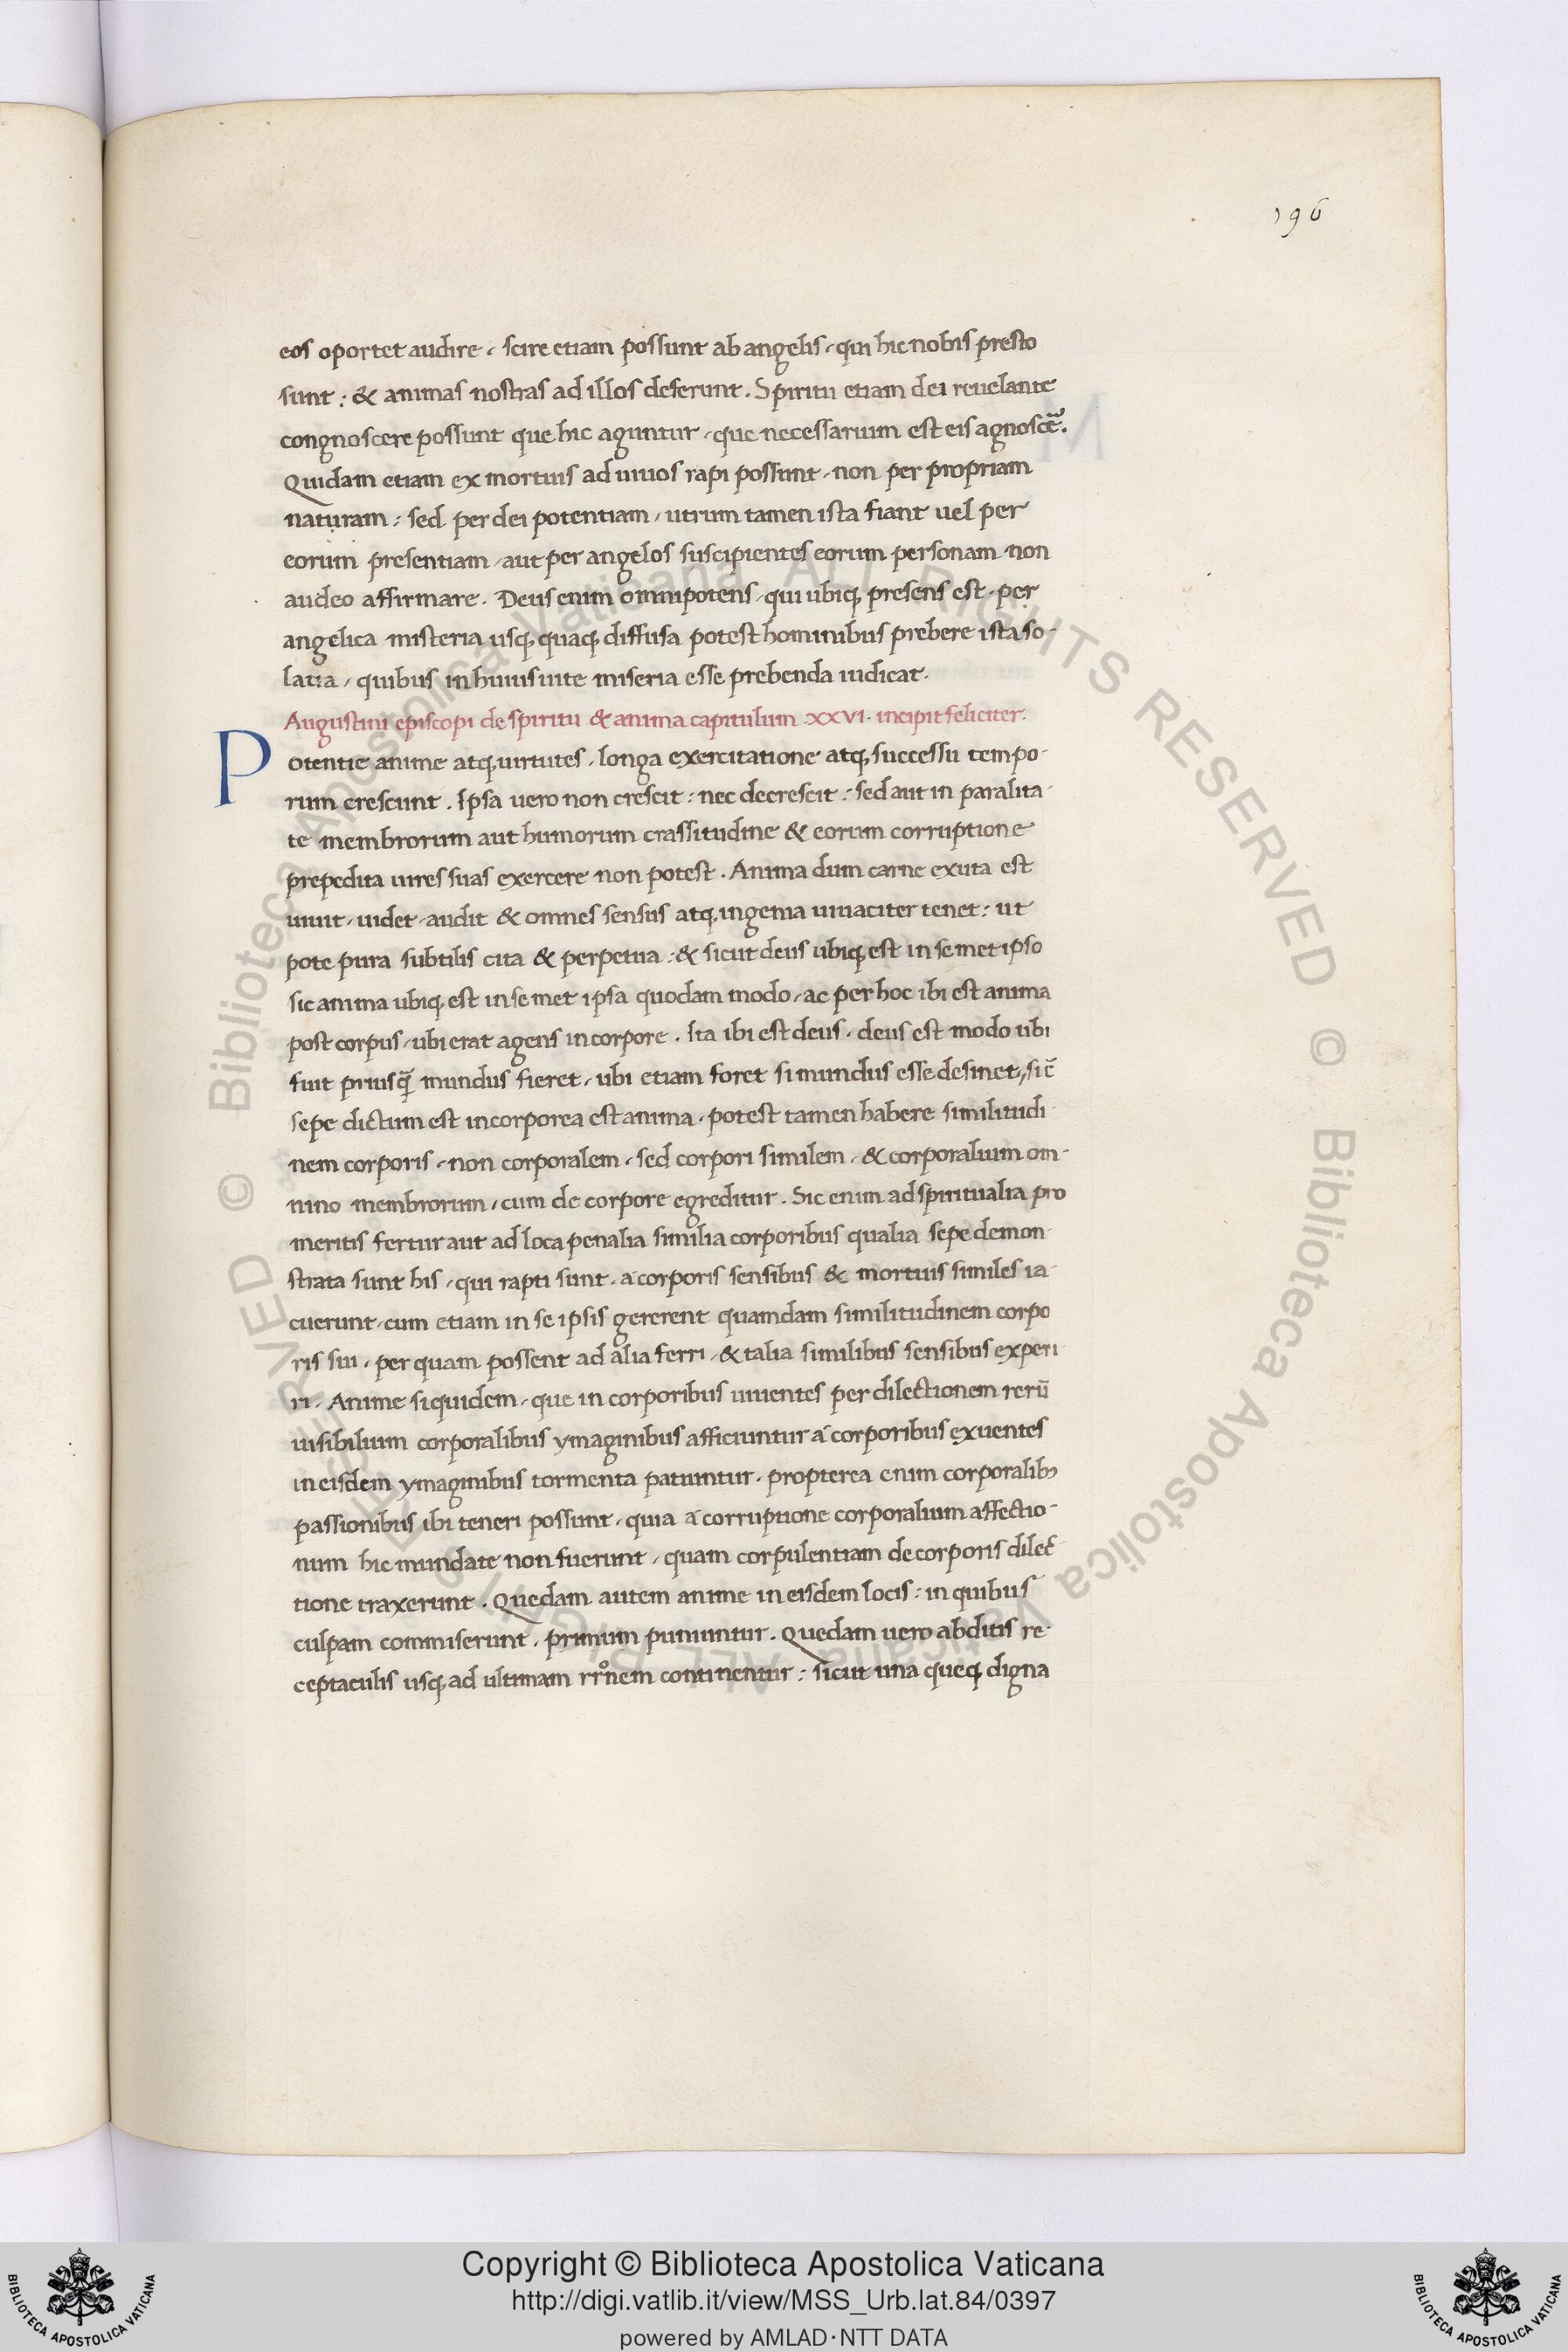 196
eos oportet audire, scire etiam possunt ab angelis, qui hic nobis presto
sunt: & animas nostras ad illos deferunt. Spiritu etiam dei reuelante
congnoscere possunt que hic aguntur, que necessarium est eis agnoscẽ.
Quidam etiam ex mortuis ad uiuos rapi possunt, non per propriam
naturam: sed per dei potentiam, utrum tamen ista fiant uel per
eorum presentiam, aut per angelos suscipientes eorum personam non
audeo affirmare. Deus enim omnipotens, qui ubiq; presens est, per
angelica misteria usq; quaq; diffusa potest hominibus prebere ista so-
latia, quibus in huius uite miseria esse prebenda iudicat.
Augustini episcopi de spiritu & anima capitulum .XXVI. incipit feliciter.
Potentie anime atq; uirtutes, longa exercitatione atq; successu tempo-
rum crescunt. Ipsa uero non crescit: nec decrescit: sed aut in paralita-
te membrorum aut humorum crassitudine & eorum corruptione
prepedita uires suas exercere non potest. Anima dum carne exuta est
uiuit, uidet, audit & omnes sensus atq; ingenia uiuaciter tenet: ut
pote pura subtilis cita & perpetua: & sicut deus ubiq; est in se met ipso
sic anima ubiq; est in se met ipsa quodam modo, ac per hoc ibi est anima
post corpus, ubi erat agens in corpore. Ita ibi est deus, deus est modo ubi
fuit priusq̃ mundus fieret, ubi etiam foret si mundus esse desinet, sic̃
sepe dictum est incorporea est anima, potest tamen habere similitudi-
nem corporis, non corporalem, sed corpori similem, & corporalium om-
nino membrorum, cum de corpore egreditur. Sic enim ad spiritualia pro
meritis fertur aut ad loca penalia similia corporibus qualia sepe demon-
strata sunt his, qui rapti sunt, a corporis sensibus & mortuis similes ia-
cuerunt, cum etiam in se ipsis gererent quamdam similitudinem corpo
ris sui, per quam possent ad alia ferri, & talia similibus sensibus experi-
ri. Anime siquidem, que in corporibus uiuentes per dilectionem rerũ
uisibilium corporalibus ymaginibus afficiuntur a corporibus exuentes
in eisdem ymaginibus tormenta patiuntur, propterea enim corporalib;
passionibus ibi teneri possunt, quia a corruptione corporalium affectio-
num hic mundate non fuerunt, quam corpulentiam de corporis dilec-
tione traxerunt. Quedam autem anime in eisdem locis: in quibus
culpam commiserunt, primum puniuntur. Quedam uero abditis re-
ceptaculis usq; ad ultimam rr̊nem continentur: sicut una queq; digna
© Biblioteca Apostolica Vaticana ALL RIGHTS RESERVED © Biblioteca Apostolica Vaticana ALL RIGHTS RESERVED
Copyright © Biblioteca Apostolica Vaticana
http://digi.vatlib.it/view/MSS_Urb.lat.84/0397
powered by AMLAD·NTT DATA
BIBLIOTECA APOSTOLICA VATICANA
BIBLIOTECA APOSTOLICA VATICANA